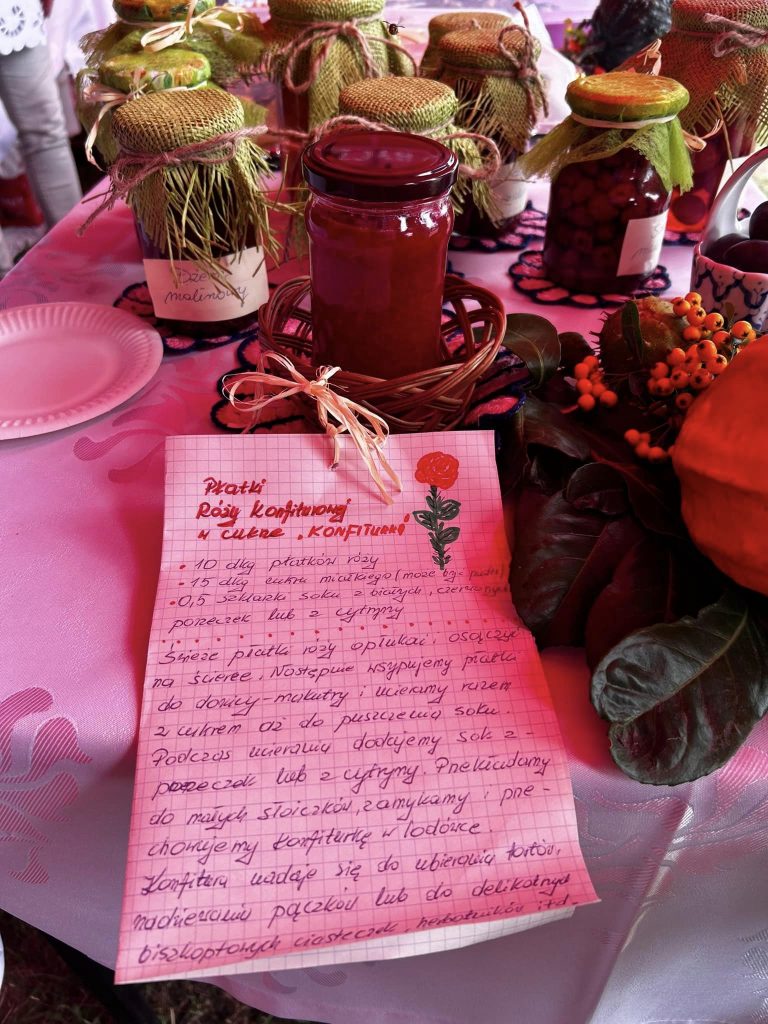 Dżem
malinowy
Płatki
Róży Konfiturowej
w cukrze „KONFITURKA"
- 10 dkg płatków róży
- 15 dkg cukru miałkiego (może być puder)
- 0,5 szklanki soku z białych, czerwonych
porzeczek lub z cytryny
Świeże płatki róży opłukać i osączyć
na ścierce. Następnie wsypujemy płatki
do donicy-makutry i ucieramy razem
z cukrem aż do puszczenia soku.
Podczas ucierania dodajemy sok z -
porzeczek lub z cytryny. Przekładamy
do małych słoiczków, zamykamy i prze-
chowujemy konfiturkę w lodówce.
Konfitura nadaje się do ubierania tortów,
nadziewania pączków lub do delikatnych
biszkoptowych ciasteczek, herbatników itd-